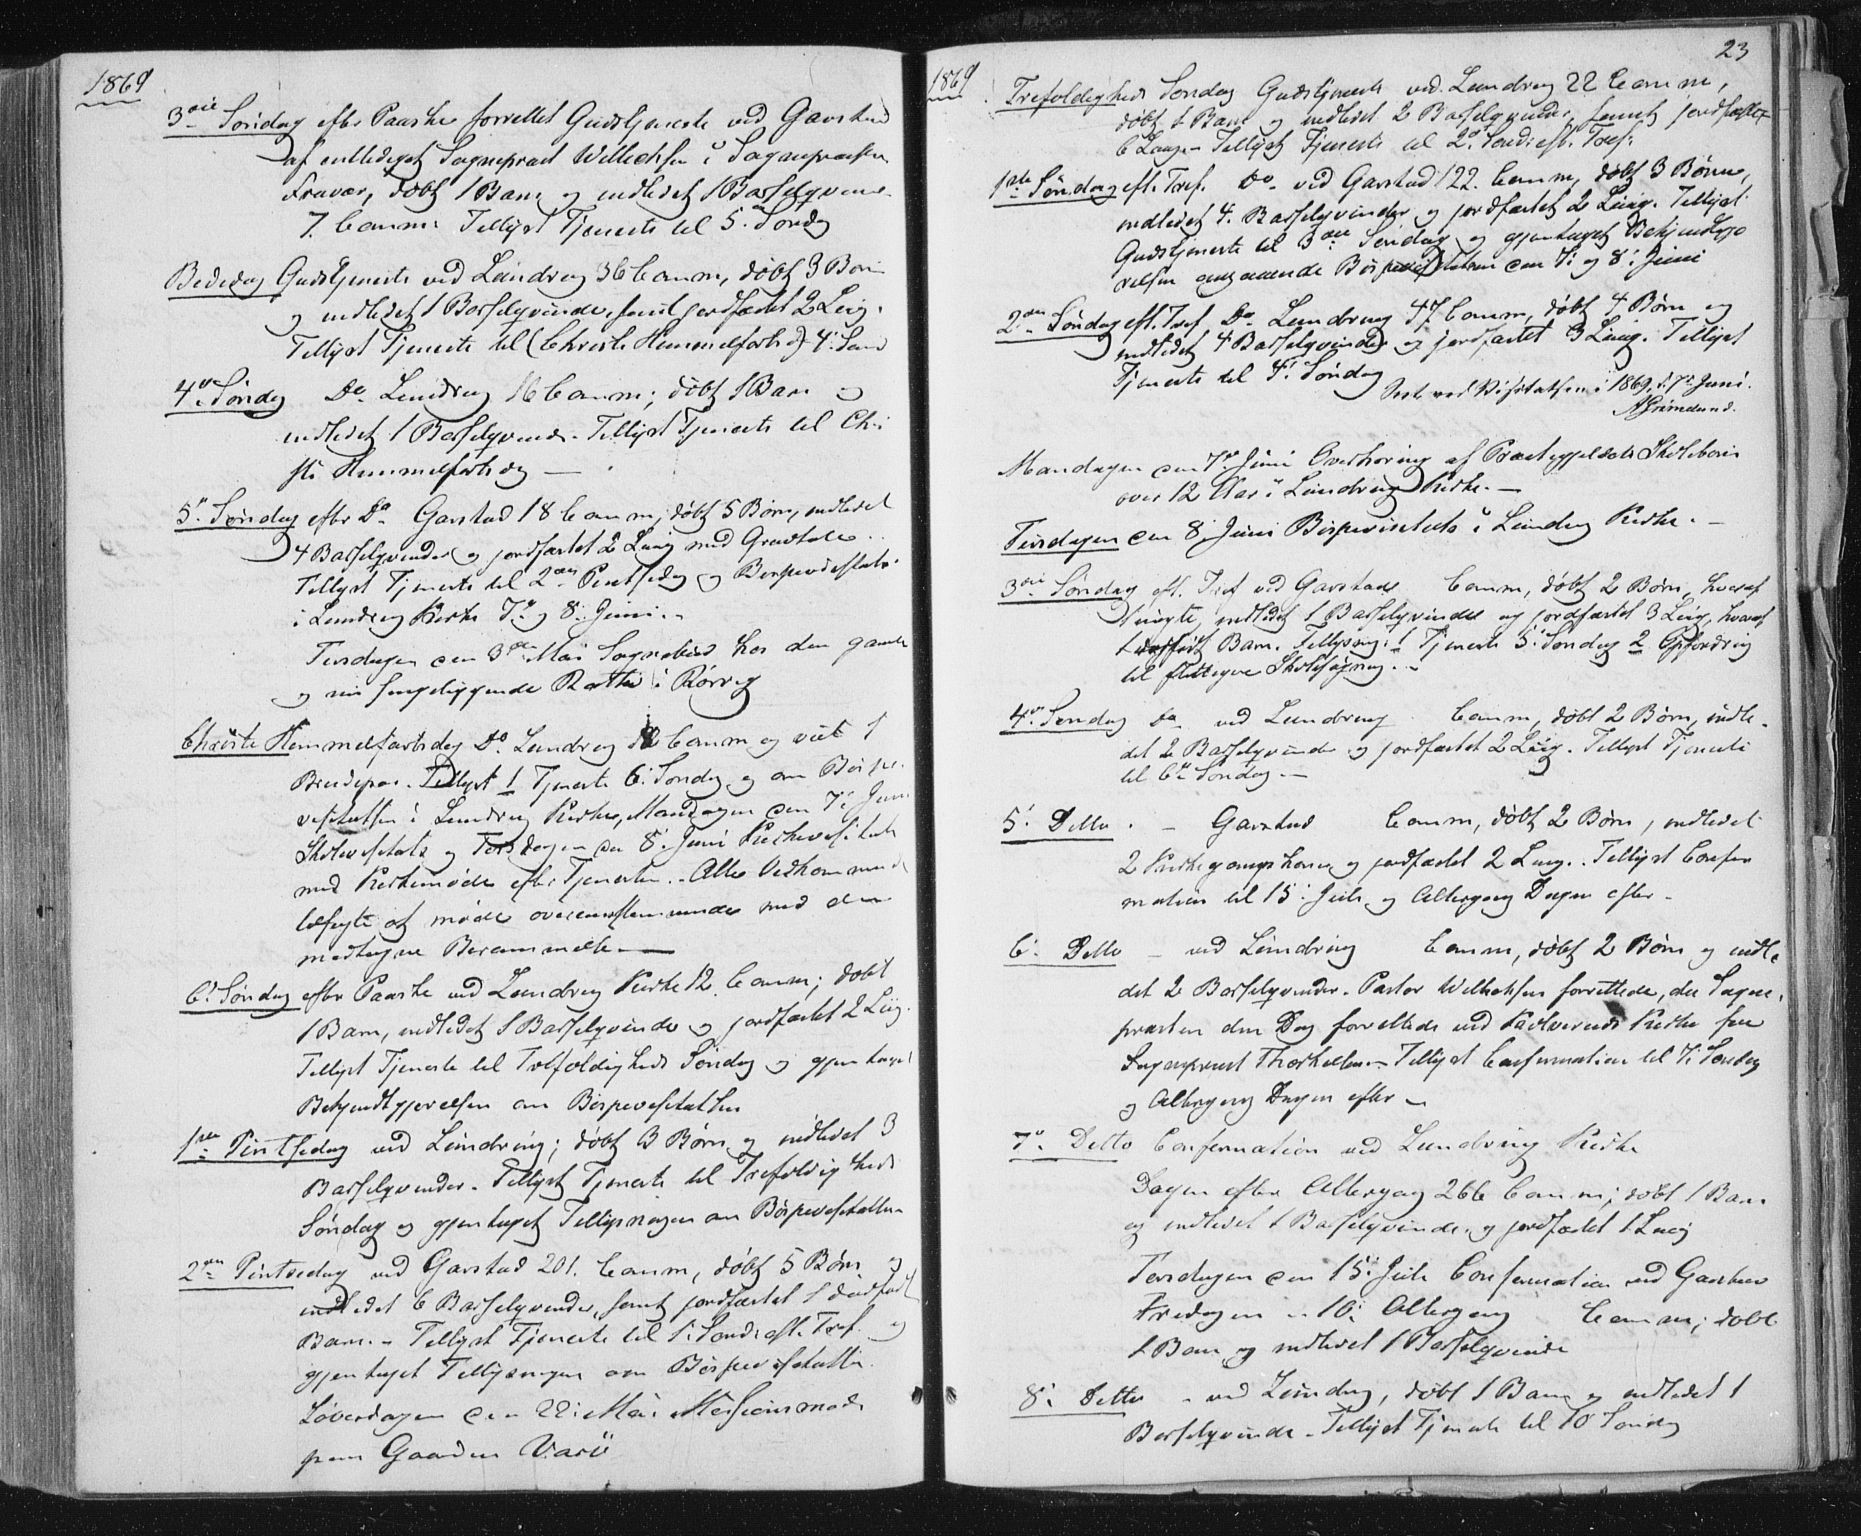 1869
3die Søndag efter Paaske forrettet Gudstjeneste ved Garstad
af entlediget Sognepræst Willochsen i Sognepræstens
Fravær, døbt 1 Barn og indledet 1 Barselqvinde
7 Comm: Tillyst Tjeneste til 5. Søndag
Bededag Gudstjeneste ved Lundring 36 Comm, døbt 3 Børn
og indledet 1 Barselqvinde, samt jordfæstet 2 Liig.
Tillyst Tjeneste til (Christi Himmelfartsd) 4. Sønd
4. Søndag Do Lundring 16 Comm; døbt 1 Barn og
indledet 1 Barselqvinde. Tillyst Tjeneste til Chri
sti Himmelfartsdag —
5. Søndag efter Do Garstad 18 Comm; døbt 5 Børn, indledet
4 Barselqvinder og jordfæstet 2 Liig med Gravtale.
Tillyst Tjeneste til 2den Pintsedag og Bispevisitats
i Lundring Kirke 7. og 8. Juni.
Tirsdagen den 3die Mai Sognebud hos den gamle
og sengeliggende i Rørvig
Christi Himmelfartsdag Do Lundring Comm og viet 1
Brudepar. Tillyst 1 Tjeneste 6. Søndag og om Bispe
visitatsen i Lundring Kirke, Mandagen den 7. Juni
Skolevisitats og Tirsdagen den 8. Juni Kirkevisitats
med Kirkemøde efter Tjenesten. Alle Vedkommende
tilsagt at møde overensstemmende med den
modtagne Berammelse —
6. Søndag efter Paaske ved Lundring Kirke 12 Comm; døbt
1 Barn, indledet 1 Barselqvinde og jordfæstet 2 Liig.
Tillyst Tjeneste til Trefoldigheds Søndag og gjentaget
Bekjendtgjørelsen om Bispevisitatsen
1ste Pintsedag ved Lundring; døbt 3 Børn og indledet 3
Barselqvinder. Tillyst Tjeneste til Trefoldigheds
Søndag og gjentaget Tillysningen om Bispevisitatsen
2den Pintsedag ved Garstad 201. Comm, døbt 5 Børn og
indledet 6 Barselqvinder, samt jordfæstet 1 dødfødt
Barn. – Tillyst Tjeneste til 1. Sønd. eft. Tref. og
gjentaget Tillysningen om Bispevisitatsen.
Løverdagen den 22. Mai Missionsmøde
paa Gaarden Varø
23
1869
Trefoldigheds Søndag Gudstjeneste ved Lundring 22 Comm,
døbt 1 Barn og indledet 2 Barselqvinder, samt jordfæstet
6 Liig. – Tillyst Tjeneste til 2. Sønd. eft. Tref.
1ste Søndag eft. Tref. Do ved Garstad 122. Comm, døbt 3 Børn,
indledet 4. Barselqvinder og jordfæstet 2 Liig. Tillyst
Gudstjeneste til 3die Søndag og gjentaget Bekjendtgjø
relsen angaaende Bispevisitatsen den 7. og 8. Juni
2den Søndag eft. Tref Do Lundring 47 Comm, døbt 4 Børn og
indledet 4 Barselqvinder og jordfæstet 3 Liig. Tillyst
Tjeneste til 4. Søndag
Seet ved Visitatsen i 1869, d. 7. Juni.
Grimelund.
Mandagen den 7. Juni Overhøring af Præstegjeldets Skolebørn
over 12 Aar i Lundring Kirke. —
Tirsdagen den 8. Juni Bispevisitats i Lundring Kirke. –
3die Søndag eft. Tref ved Garstad Comm, døbt 2 Børn, hvoraf
1 uægte, indledet 1 Barselqvinde og jordfæstet 3 Liig, hvoraf
1 dødfødt Barn. Tillysning: 1 Tjeneste 5. Søndag 2 Opfordring
til flittigere Skolesøgning. –
4. Søndag Do ved Lundring Comm, døbt 2 Børn, indle
det 2 Barselqvinder og jordfæstet 2 Liig. Tillyst Tjeneste
til 6te Søndag. –
5. Ditto. – Garstad Comm, døbt 2 Børn, indledet
2 Kirkegangskoner og jordfæstet 2 Liig. Tillyst Confir
mation til 15. Juli og Altergang Dagen efter –
6. Ditto – ved Lundring Comm, døbt 2 Børn og indle
det 2 Barselqvinder. Pastor Willochsen forrettede, da Sogne
præsten den Dag forrettede ved Kolvereids Kirke for
Sognepræst Thorkelsen. – Tillyst Confirmation til 7. Søndag
og Altergang Dagen efter –
7. Ditto Confirmation ved Lundring Kirke
Dagen efter Altergang 266 Comm; døbt 1 Barn
og indledet 1 Barselqvinde og jordfæstet 1 Liig
Torsdagen den 15. Juli Confirmation ved Garstad
Fredagen „ 16. Altergang Comm; døbt
1 Barn og indledet 1 Barselqvinde
8. Ditto – ved Lundring, døbt 1 Barn og indledet 1
Barselqvinde. Tillyst Tjeneste til 10 Søndag